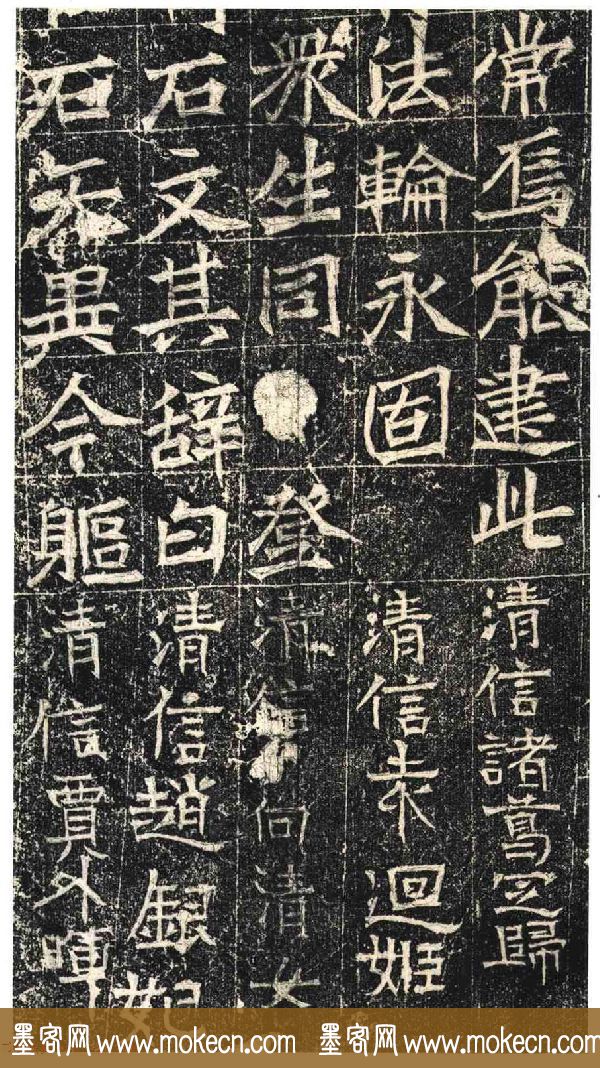 常焉能建此清信諸葛𡧃歸
法輪永固清信袁迴姬
衆生同登清信向清女
石文其辞曰清信趙銀妃
石森異今軀清信賈外暉
墨客网 www.mokecn.com 墨客网 www.mokecn.com